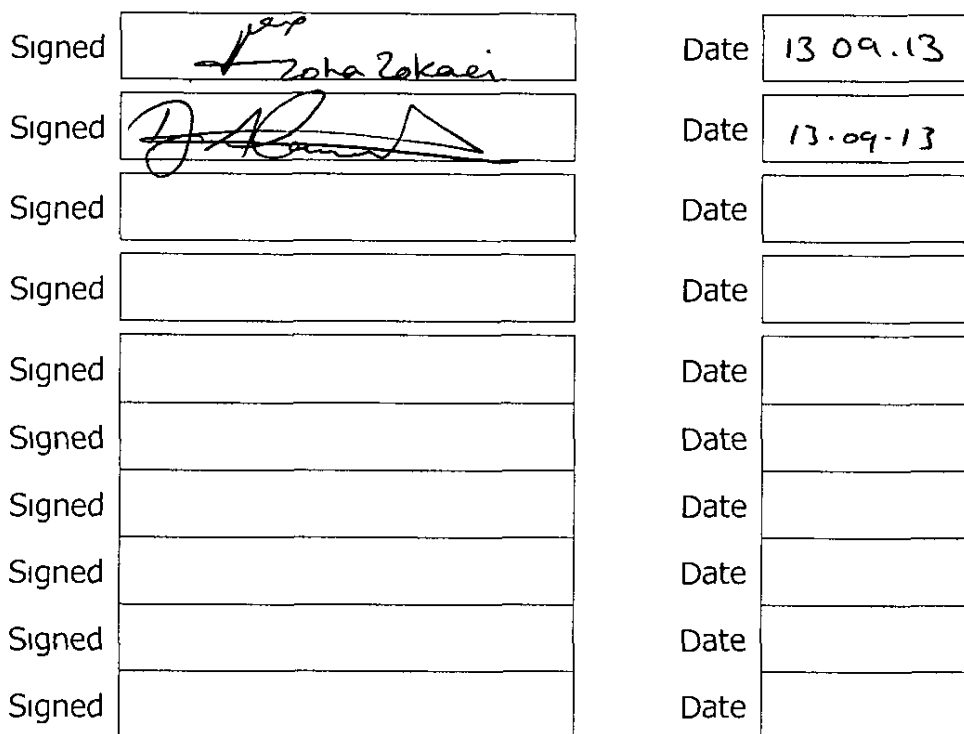 Signed Zoha Zokaei Date 13 09.13
Signed Date 13.09.13
Signed Date
Signed Date
Signed Date
Signed Date
Signed Date
Signed Date
Signed Date
Signed Date